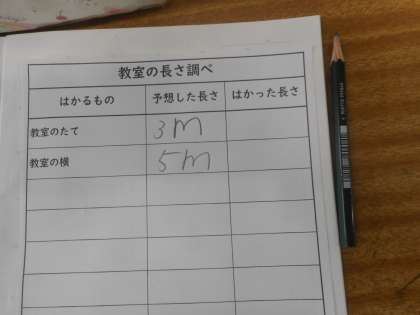 教室の長さ調べ
はかるもの 予想した長さ はかった長さ
教室のたて 3m
教室の横 5m